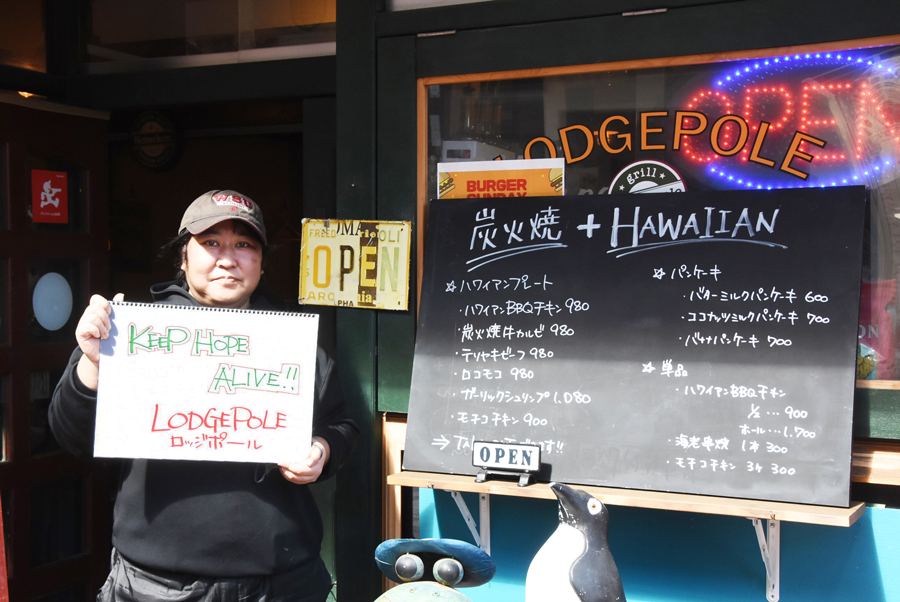 LODGEPOLE
OPEN
grill
BURGER
SUNDAY
WSU
OPEN
KEEP HOPE
ALIVE!!
LODGEPOLE
ロッジポール
炭火焼 + HAWAIIAN
☆ ハワイアンプレート
・ハワイアンBBQチキン 980
・炭火焼牛カルビ 980
・テリヤキビーフ 980
・ロコモコ 980
・ガーリックシュリンプ 1,080
・モチコチキン 900
☆ パンケーキ
・バターミルクパンケーキ 600
・ココナッツミルクパンケーキ 700
・バナナパンケーキ 700
☆ 単品
・ハワイアンBBQチキン
½ … 900
ホール … 1,700
・海老串焼 1本 300
・モチコチキン 3ケ 300
OPEN